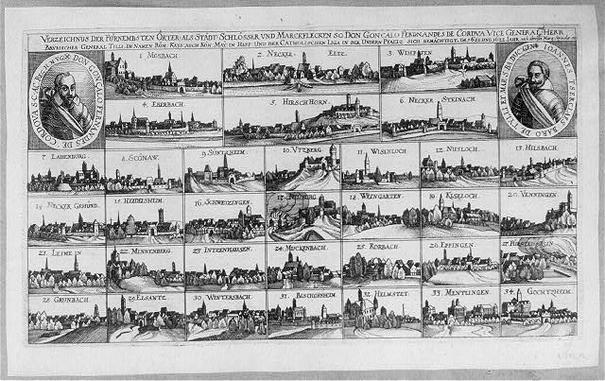 VERZEICHNUS DER FURNEMBSTEN ÖRTER ALS STÄDT SCHLÖSSER VND MARCKFLECKEN SO DON GONÇALO FERDINANDES DE CORDVA VICE GENERAL HERR
BAYRISCHER GENERAL TILLI IM NAMEN RÖM KAYS AVCH KÖN MAY IN HISP VND DER CATHOLISCHEN LIGA IN DER VNDERN PFALTZ SICH BEMÄCHTIGET
DON GONZAL FERNANDES DE CORDOVA
IOANNES TSERCLAES BARO DE TILLI
1. MOSBACH
2. NECKER ELTZ
3. WIMPFFEN
4. EBERBACH
5. HIRSCHHORN
6. NECKER STEINACH
7. LADENBURG
8. SCÖNAW
9. SÜNTZHEIM
10. VTZBERG
11. WISENLOCH
12. NUSLOCH
13. HILSBACH
14. NECKER GEMUND
15. HEIDELSHEIM
16. SCHWETZINGEN
17. NEUBURG
18. WEINGARTEN
19. KISELOCH
20. VENNINGEN
21. LEIMEIN
22. MINNENBERG
23. INTZENHAUSEN
24. MÜCKENBACH
25. RORBACH
26. EPPINGEN
28. GRUNBACH
29. ELSANTZ
30. WINTERSBACH
31. BISCHOFSHEIM
32. HELMSTET
33. MENTZINGEN
34. GOCHTZHEIM